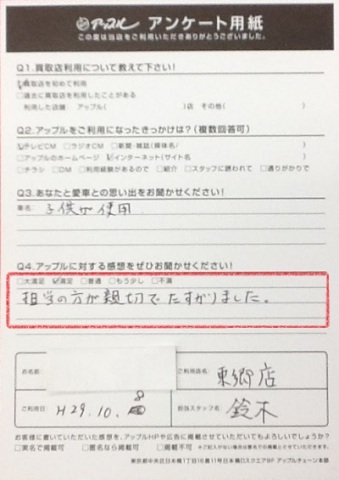 アップル アンケート用紙
この度は当店をご利用いただきありがとうございました。
Q1.買取店利用について教えて下さい!
買取店を初めて利用
□過去に買取店を利用したことがある
利用した店舗: アップル( )店 その他( )
Q2.アップルをご利用になったきっかけは?(複数回答可)
☑テレビCM □ラジオCM □新聞・雑誌(媒体名/ )
□アップルのホームページ ☑インターネット(サイト名 )
□チラシ □DM □利用経験があるので □紹介 □スタッフに誘われて □通りがかりで
Q3.あなたと愛車との思い出をお聞かせください!
車名: 子供が使用
Q4.アップルに対する感想をぜひお聞かせください!
□大満足 ☑満足 □普通 □もう少し □不満
担当の方が親切でたすかりました。
お名前 ご利用店名: 東郷店
ご利用日: H29.10.8 担当スタッフ名: 鈴木
お客様に書いていただいた感想を、アップルHPや広告に掲載させていただいてもよろしいでしょうか?
□実名で掲載可 □匿名なら掲載可 □掲載不可